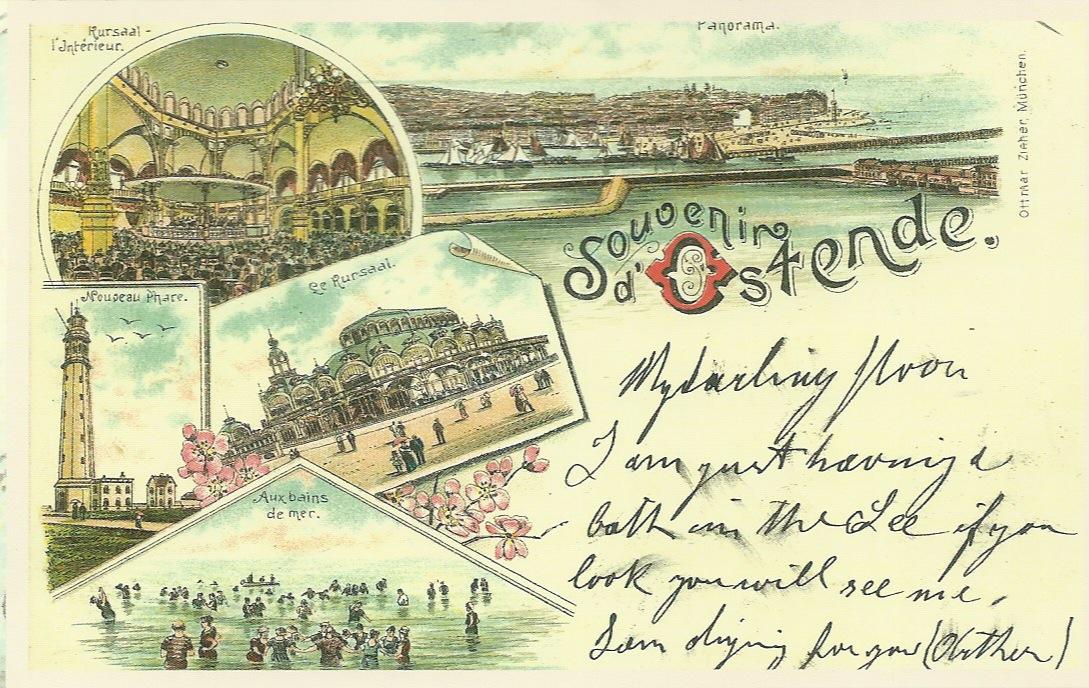 Kursaal -
l'Intérieur.
Panorama.
Ottmar Zieher, München.
Souvenir
d'Ostende.
Le Kursaal.
Nouveau Phare.
Aux bains
de mer.
My darling
I am just having a
bath in the See if you
look you will see me.
I am
for you